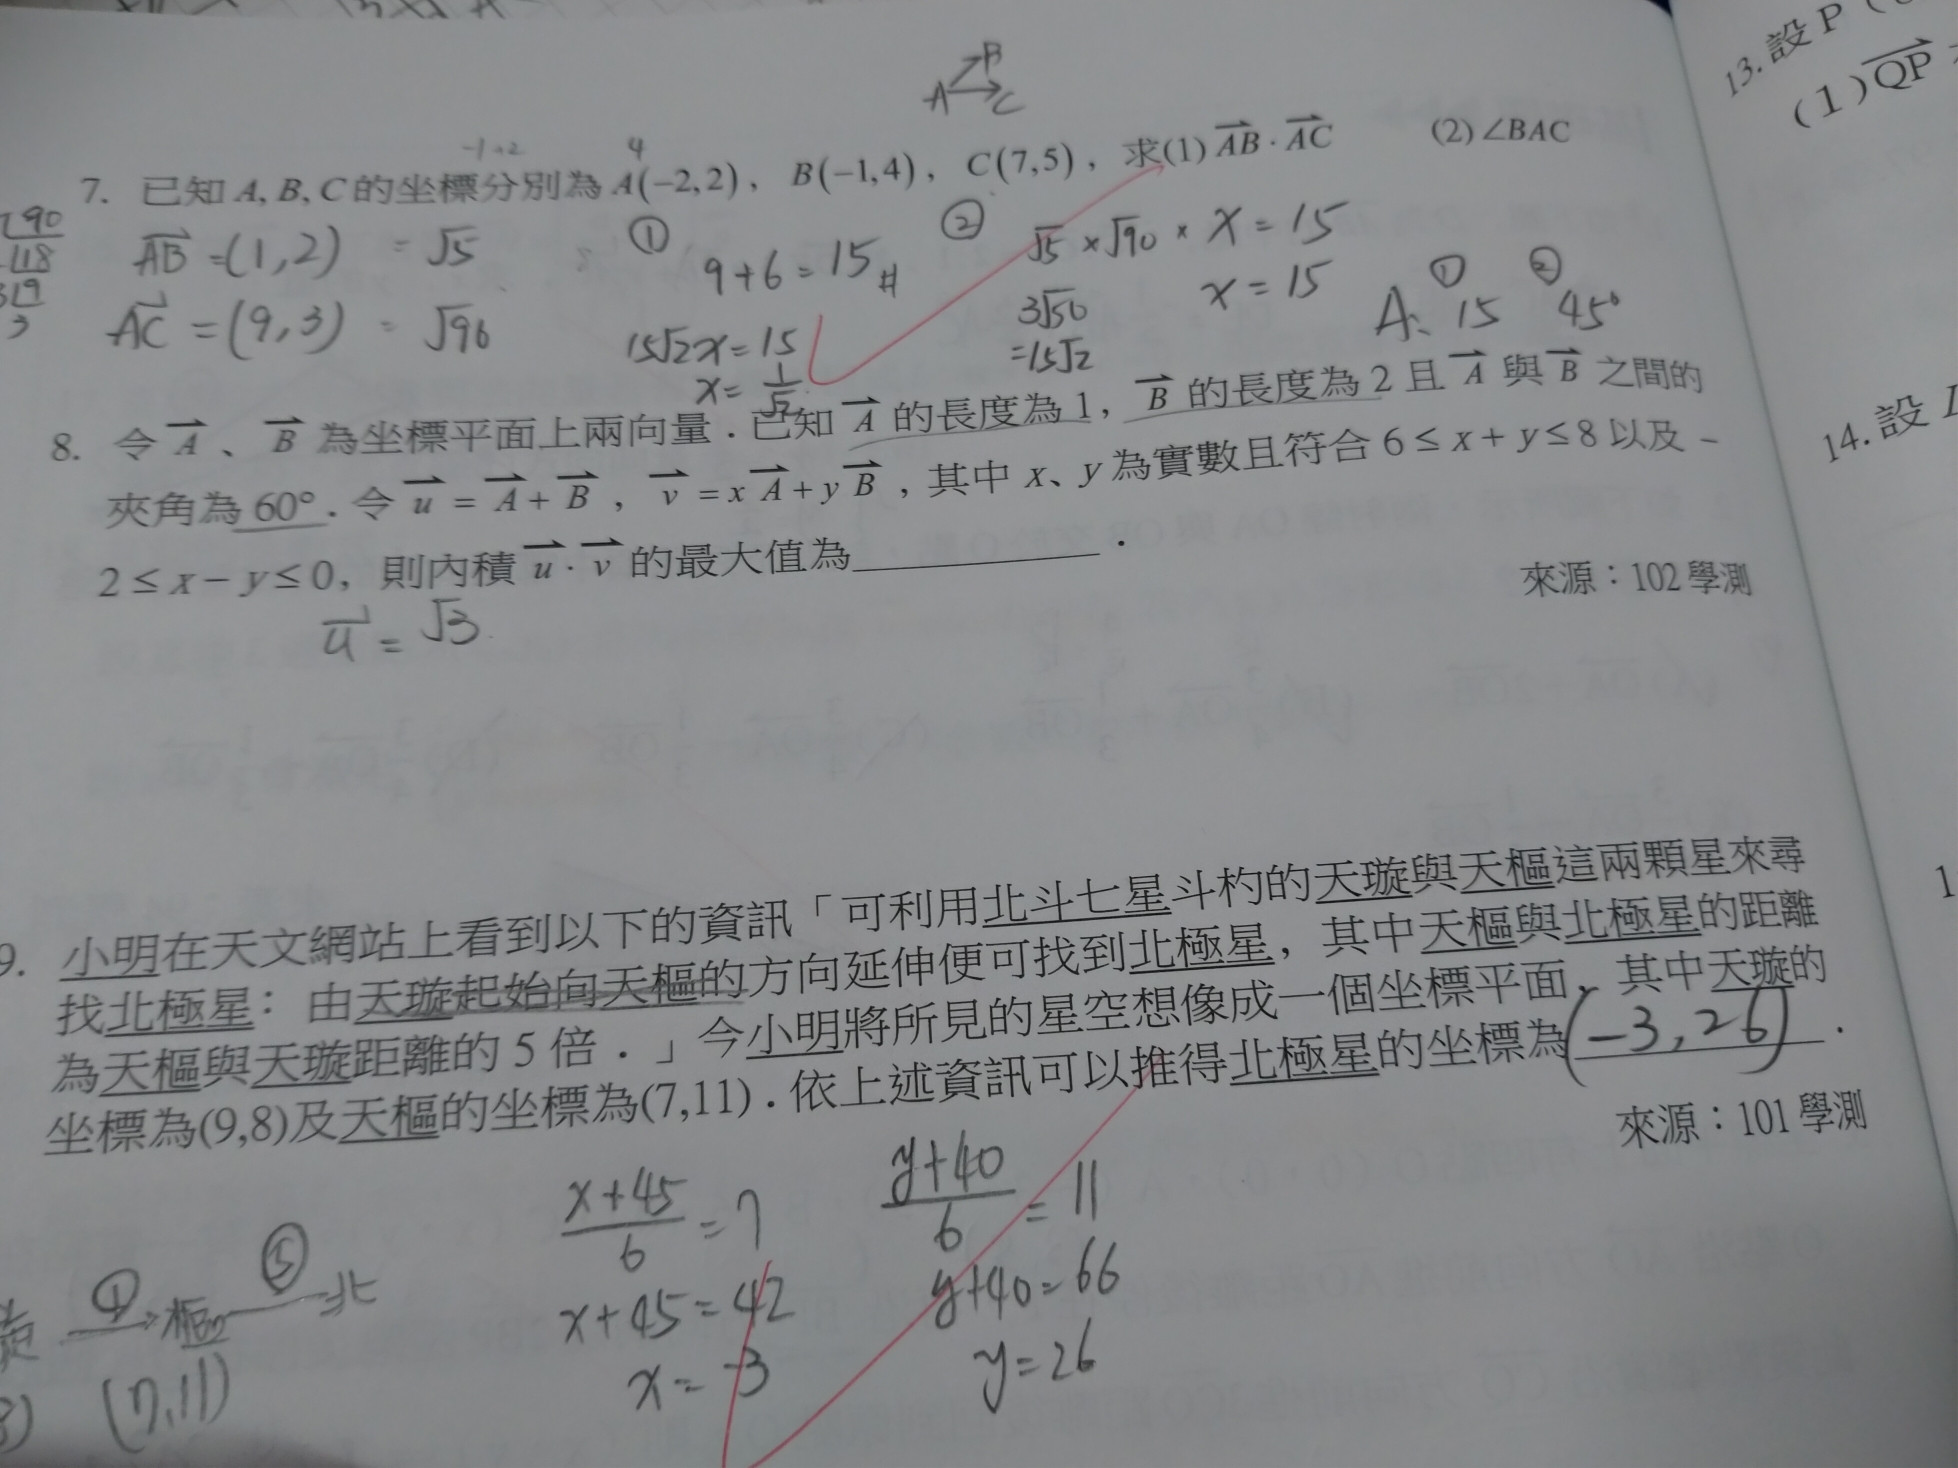 A B C
-1+2 4
7. 已知 A, B, C 的坐標分別為 A(-2,2), B(-1,4), C(7,5), 求(1) AB · AC (2) ∠BAC
AB = (1,2) = √5 ① 9+6=15# ② √5 × √90 × x = 15
AC = (9,3) = √90 15√2x=15 3√50 x = 15 A: ① 15 ② 45°
x = 1/√2 =15√2
8. 令 A、B 為坐標平面上兩向量.已知 A 的長度為 1, B 的長度為 2 且 A 與 B 之間的
夾角為 60°.令 u = A + B, v = x A + y B, 其中 x、y 為實數且符合 6 ≤ x + y ≤ 8 以及 –
2 ≤ x – y ≤ 0, 則內積 u · v 的最大值為________.
來源:102 學測
u = √3
9. 小明在天文網站上看到以下的資訊「可利用北斗七星斗杓的天璇與天樞這兩顆星來尋
找北極星: 由天璇起始向天樞的方向延伸便可找到北極星, 其中天樞與北極星的距離
為天樞與天璇距離的 5 倍.」今小明將所見的星空想像成一個坐標平面, 其中天璇的
坐標為(9,8)及天樞的坐標為(7,11).依上述資訊可以推得北極星的坐標為(-3,26).
來源:101 學測
(x+45)/6 = 7 (y+40)/6 = 11
① 樞 ⑤ 北 x+45=42 y+40=66
(7,11) x=-3 y=26
13. 設 P (
(1) QP
14. 設